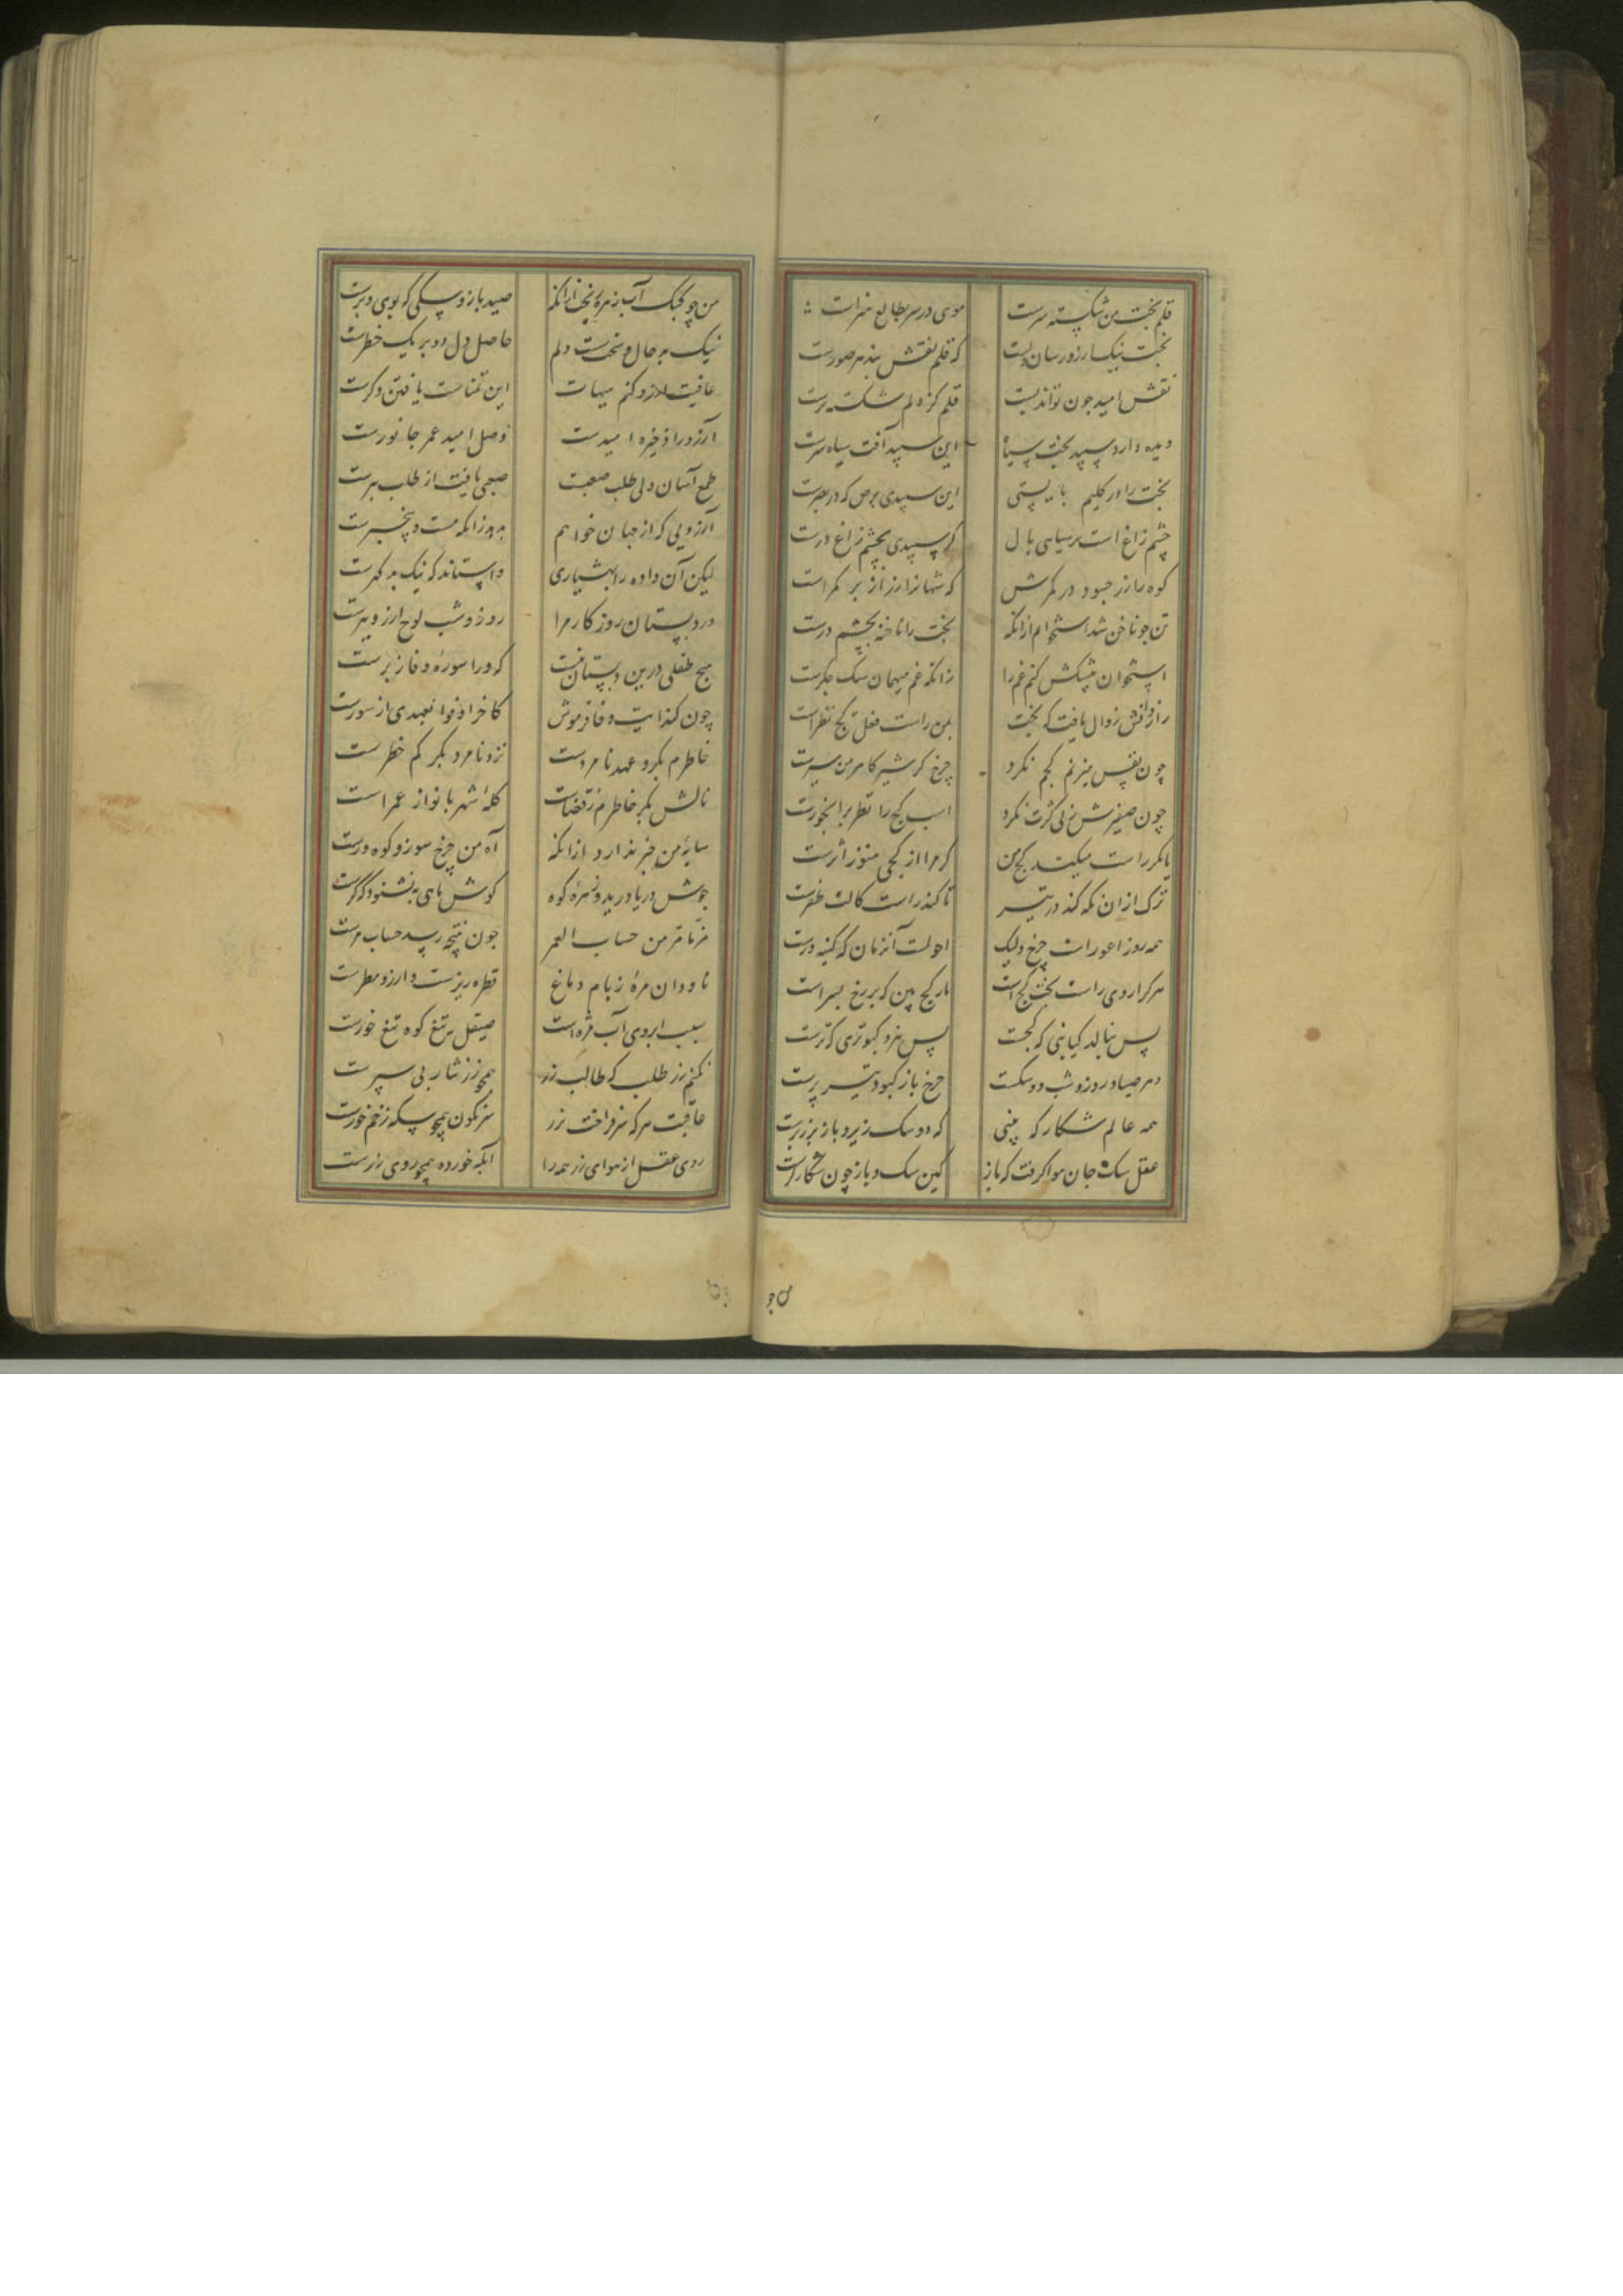 قلم بخت من شکسته سرست موی در سر بطالع هنرست
بخت نیک ارزو رسان دلست که قلم نقش بند هر صورست
نقش امید چون تواند بست قلم کز دلم شکسته ترست
دیده دارد سپید بخت سیاه این سپید آفت سیاه سرست
بخت را در کلیم بایستی این سپیدی برص که در بصرست
چشم زاغ است بر سیاهی بال کر سپیدی بچشم زاغ درست
کوه را زر چه سود در کمرش که شهانرا زر از بر کمر است
تن چو ناخن شد استخوانم از انکه بخت را ناخنه بچشم درست
استخوان پیشکش کنم غم را زانکه غم میهمان سک جکرست
زوال یافت که بخت بمن راست فعل کج نظرست
چون نفس میزنم کجم نکرد چرخ کژ سیر کاهرمن سیرست
چون صفیرش زنی کژت نکرد اسب کج را نظر بر ابخورست
یا مکر راست میکند کج من که مرا از کجی هنوز اثرست
ترک از ان نکه کند در تیر تا کند راست کالت ظفرست
همه روز اعور است چرخ ولیک احولست آنزمان که کینه ورست
هر که را روی راست بخت کج است مار کج بین که بر رخ سپر است
پس بنالد کیا بنی که کجست پس نیرو کبوتری که ترست
دهر صیاد و روز و شب دو سکست چرخ باز کبود تیز پرست
همه عالم شکار که بینی که دو سک زیر و باز بر زبرست
عقل سک جان هوا کرفت که باز کین سک و باز چون شکار کرست
من جو
من چو کبک آب زهره ریخت از انکه صید باز و سکی که بوی برست
نیک بد حال و سخت سست دلم حاصل دل دو بر یک خطرست
عافیت ارزو کنم هیهات این تمناست یافتن دکرست
آرزو را ذخیره امیدست وصل امید عمر جانورست
طمع آسان ولی طلب صعبست صعبی یافت از طلب بترست
آرزویی که از جهان خواهم بدهد زانکه مست و بیخبرست
لیکن آن داده را بهشیاری واستاند که نیک بد کهرست
در دبستان روزکار مرا روز و شب لوح ارزو ببرست
هیچ طفلی درین دبستان نیست که ورا سوره وفا زبرست
چون کذاریت وفا فرموش کاخر اوفوا بعهدی از سورست
خاطرم بکر و عهد نامردست نزد نامرد بکر کم خطر ست
نالش بکر خاطرم ز قضاست کله شهر بانو از عمر است
سایه من خبر ندارد از انکه آه من چرخ سوز و کوه درست
جوش دریا درید زهره کوه کوش ماهی بنشنود که کرست
مرتا مر من حساب العمر چون نتیجه رسید حساب مرست
ناودان مژه ز بام دماغ قطره ریزست و ارزو مطرست
سبب ابروی آب مژه است صیقل تیغ کوه تیغ خورست
نکنم زر طلب که طالب زر همچو زر نثار پی سپرست
عاقبت هر که سر فراخت بزر سرنکون همچو سکه زخم خورست
روی عقل از هوای زر همه را ابله خورده همچو روی زرست